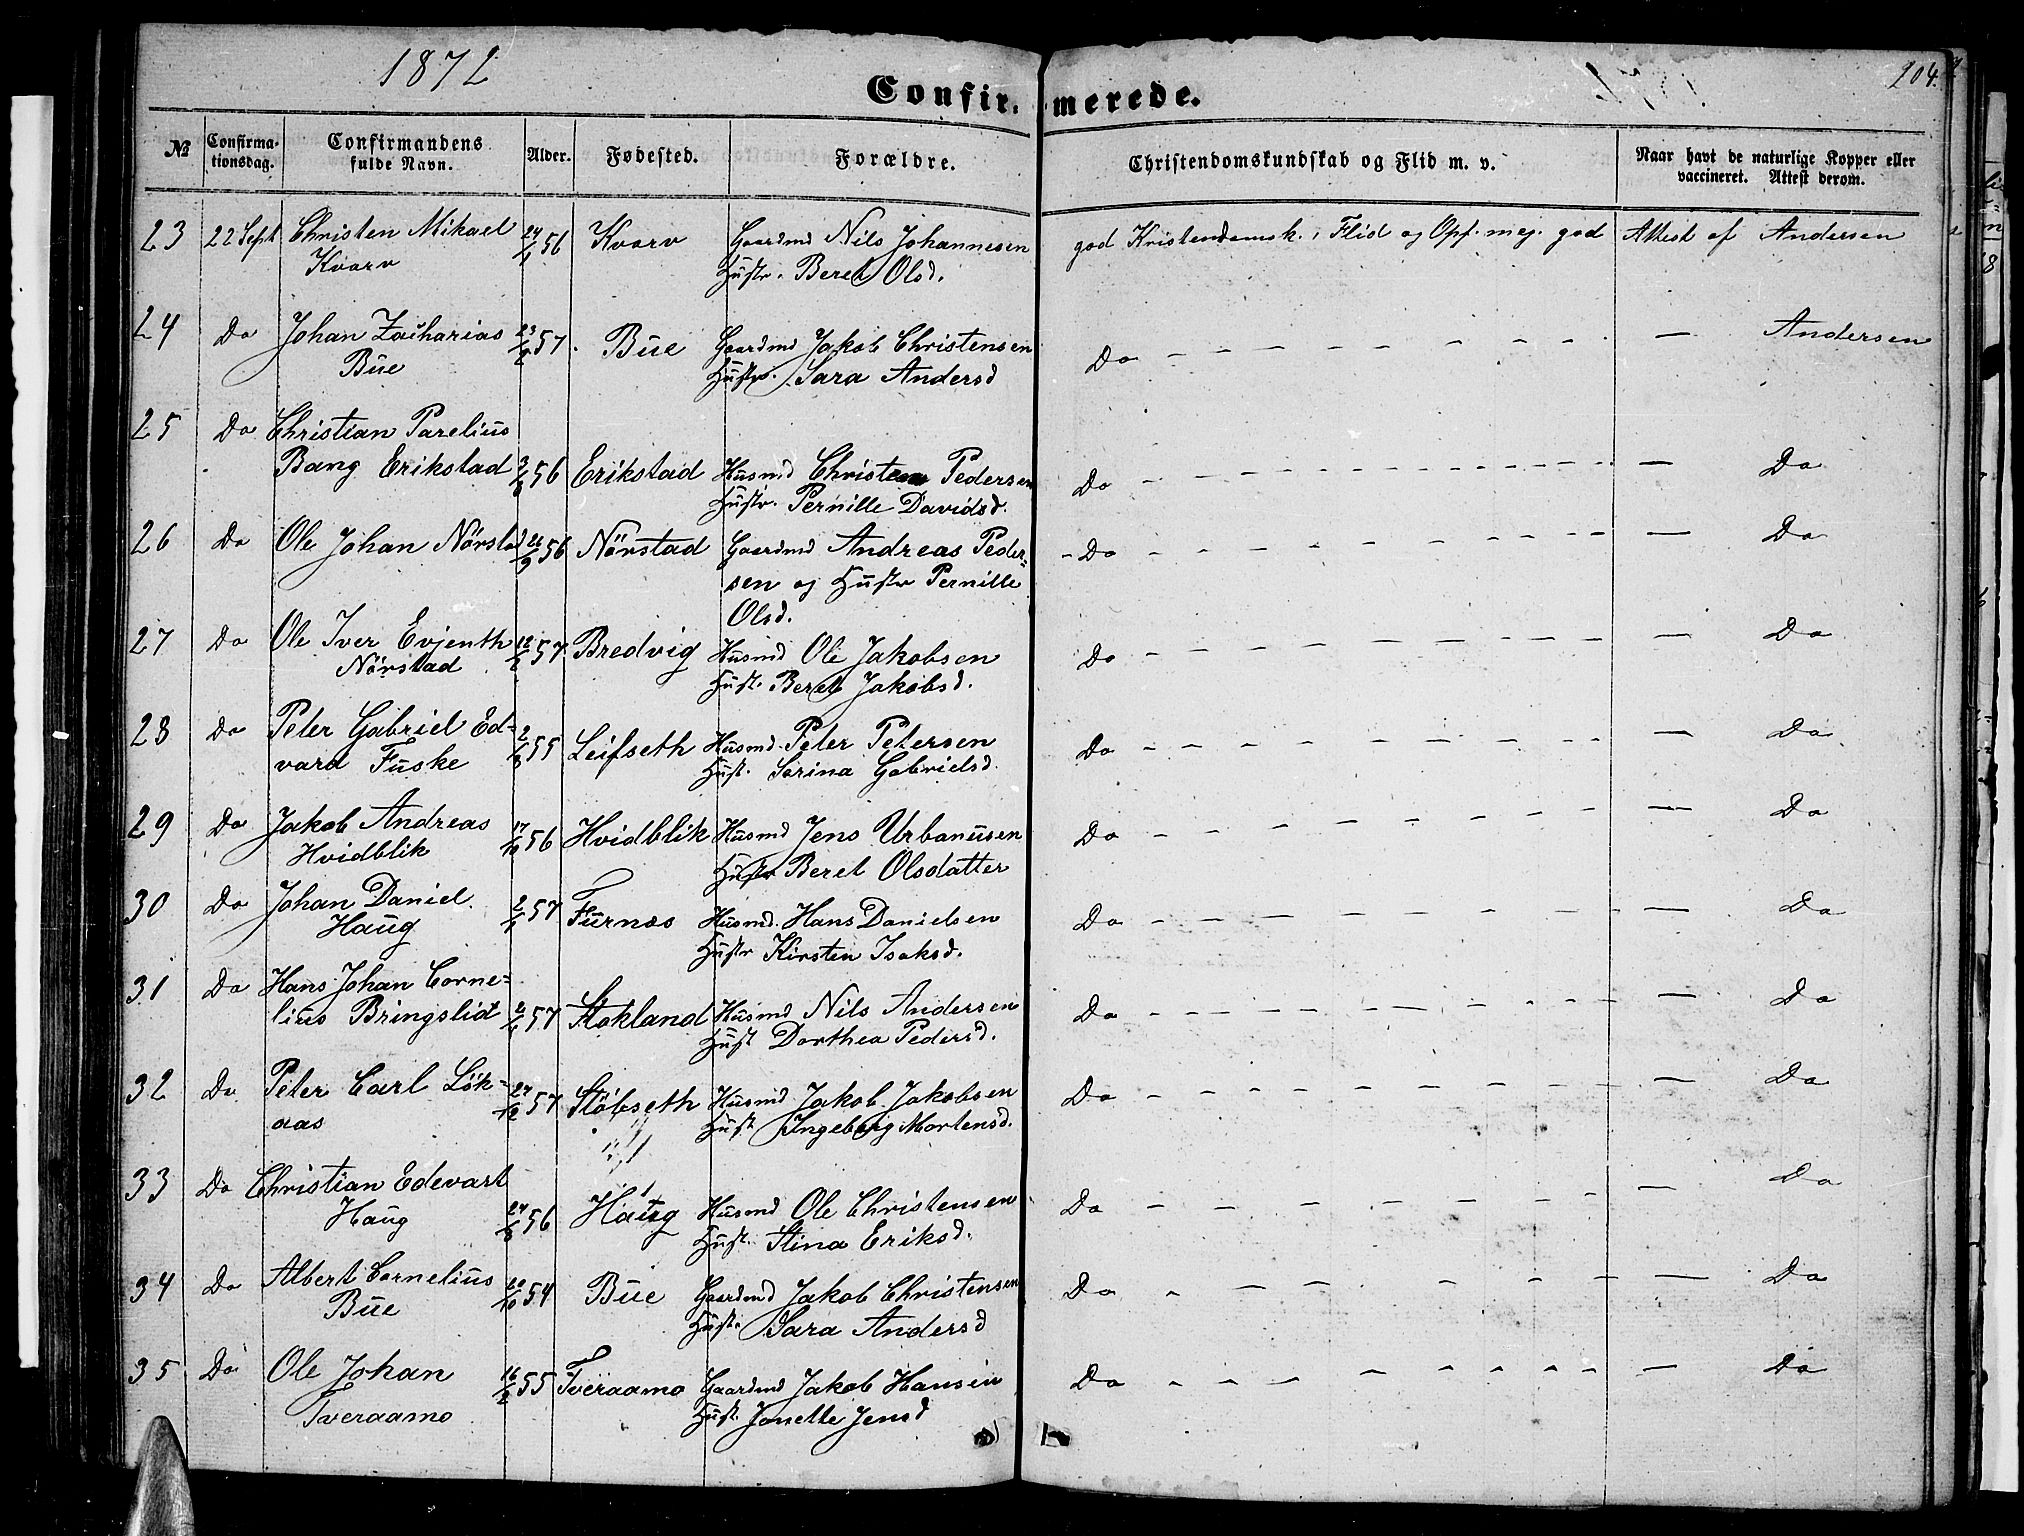 1872
204.
Confirmerede.
№ Confirmationsdag. Confirmandens fulde Navn. Alder. Fødested. Forældre. Christendomskundskab og Flid m. v. Naar havt de naturlige Kopper eller vaccineret. Attest derom.
23 22 Sept Christen Mikael 24/1 56 Kvarv Gaardmd Nils Johannesen god Kristendomsk., Flid og Opf. meg. god Attest af Andersen
Kvarv Hustr. Beret Olsd.
24 Do Johan Zacharias 23/2 57. Bue Gaardmd Jakob Christensen Do — Andersen
Bue Hustr. Sara Andersd
25 Do Christian Parelius
Bang Erikstad 3/8 56 Erikstad Husmd Christen Pedersen Do — Do
Hustr. Pernille Davidsd.
26 Do Ole Johan Nörstad 26/9 56 Nörstad Gaardmd Andreas Peder= Do — Do
sen og Hustr Pernille
Olsd.
27 Do Ole Iver Evjenth 12/2 57 Bredvig Husmd Ole Jakobsen Do — Do
Nörstad Hust. Beret Jakobsd.
28 Do Peter Gabriel Ed=
vard Fuske 2/8 55 Leifseth Husmd. Peter Petersen Do — Do
Hust. Sorina Gabrielsd.
29 Do Jakob Andreas 17/10 56 Hvidblik Husmd Jens Urbanusen Do — Do
Hvidblik Hustr Beret Olsdatter
30 Do Johan Daniel 2/1 57 Furnes Husmd. Hans Danielsen Do — Do
Haug Hustr Kirsten Isaksd.
31 Do Hans Johan Corne=
lius Bringslid 2/1 57 Stokland Husmd Nils Andersen Do — Do
Hust Dorthea Pedersd.
32 Do Peter Carl Lök= 27/10 57 Stöbseth Husmd Jakob Jakobsen Do — Do
aas Hust Ingeborg Mortensd.
33 Do Christian Edevart
Haug 24/8 56 Haug Husmd Ole Christensen Do — Do
Hust. Stina Eriksd.
34 Do Albert Cornelius 20/10 54 Bue Gaardmd Jakob Christensen Do — Do
Bue Hust. Sara Andersd
35 Do Ole Johan 16/2 55 Tveraamo Gaardmd Jakob Hansen Do — Do
Tveraamo Hust. Janette Jensd